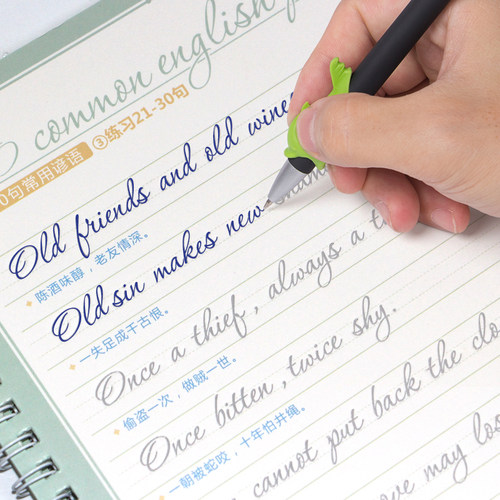 common english
0句常用谚语 ③练习21-30句
Old friends and old wines
陈酒味醇，老友情深。
Old sin makes new
一失足成千古恨。
Once a thief, always a
偷盗一次，做贼一世。
Once bitten, twice shy.
一朝被蛇咬，十年怕井绳。
cannot put back the clo
may